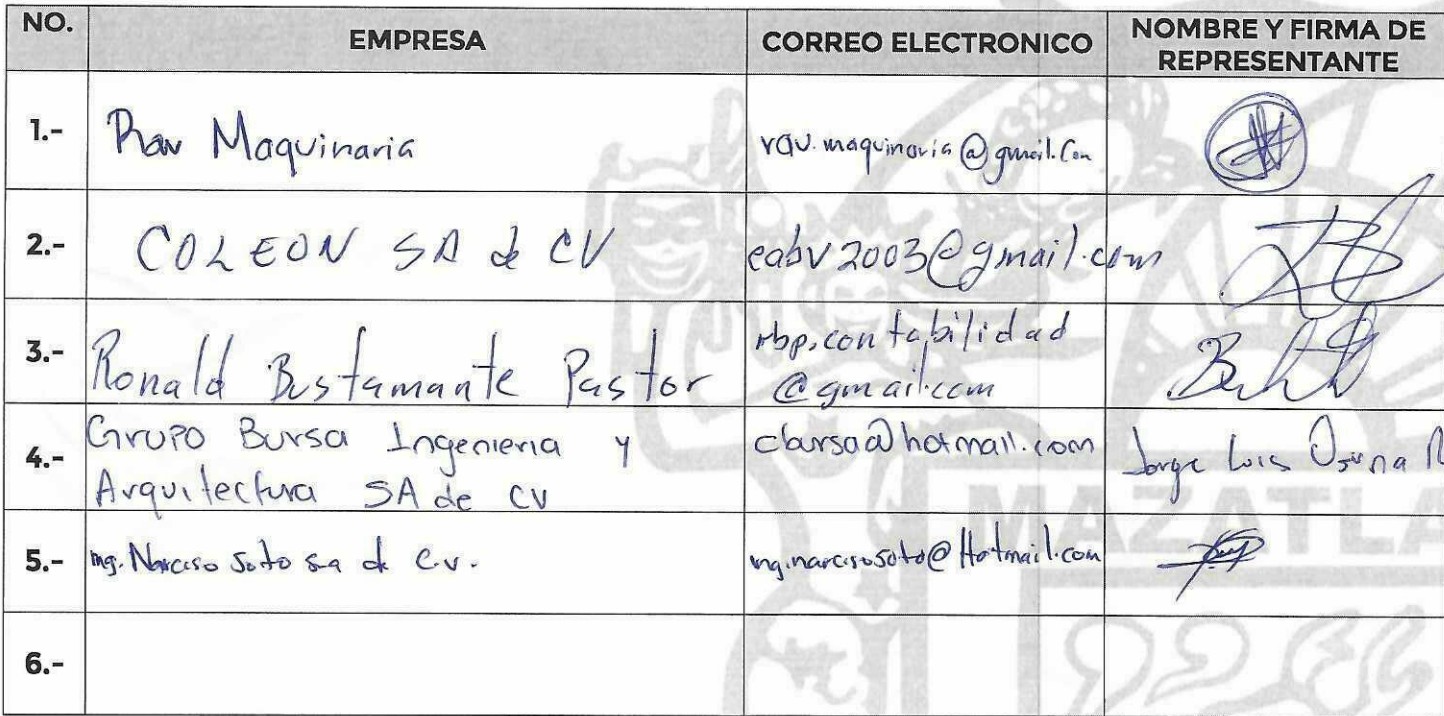 NO. EMPRESA CORREO ELECTRONICO NOMBRE Y FIRMA DE
REPRESENTANTE
1.- Rav Maquinaria rav.maquinaria@gmail.Com
2.- COLEON SA de CV eabv2003@gmail.com
3.- Ronald Bustamante Pastor rbp.contabilidad
@gmail.com
4.- Grupo Bursa Ingenieria y cbursa@hotmail.com Jorge Luis Osuna
Arquitectura SA de CV
5.- Ing. Narciso Soto sa de C.v. ing.narcisosoto@Hotmail.com
6.-
MAZATLA